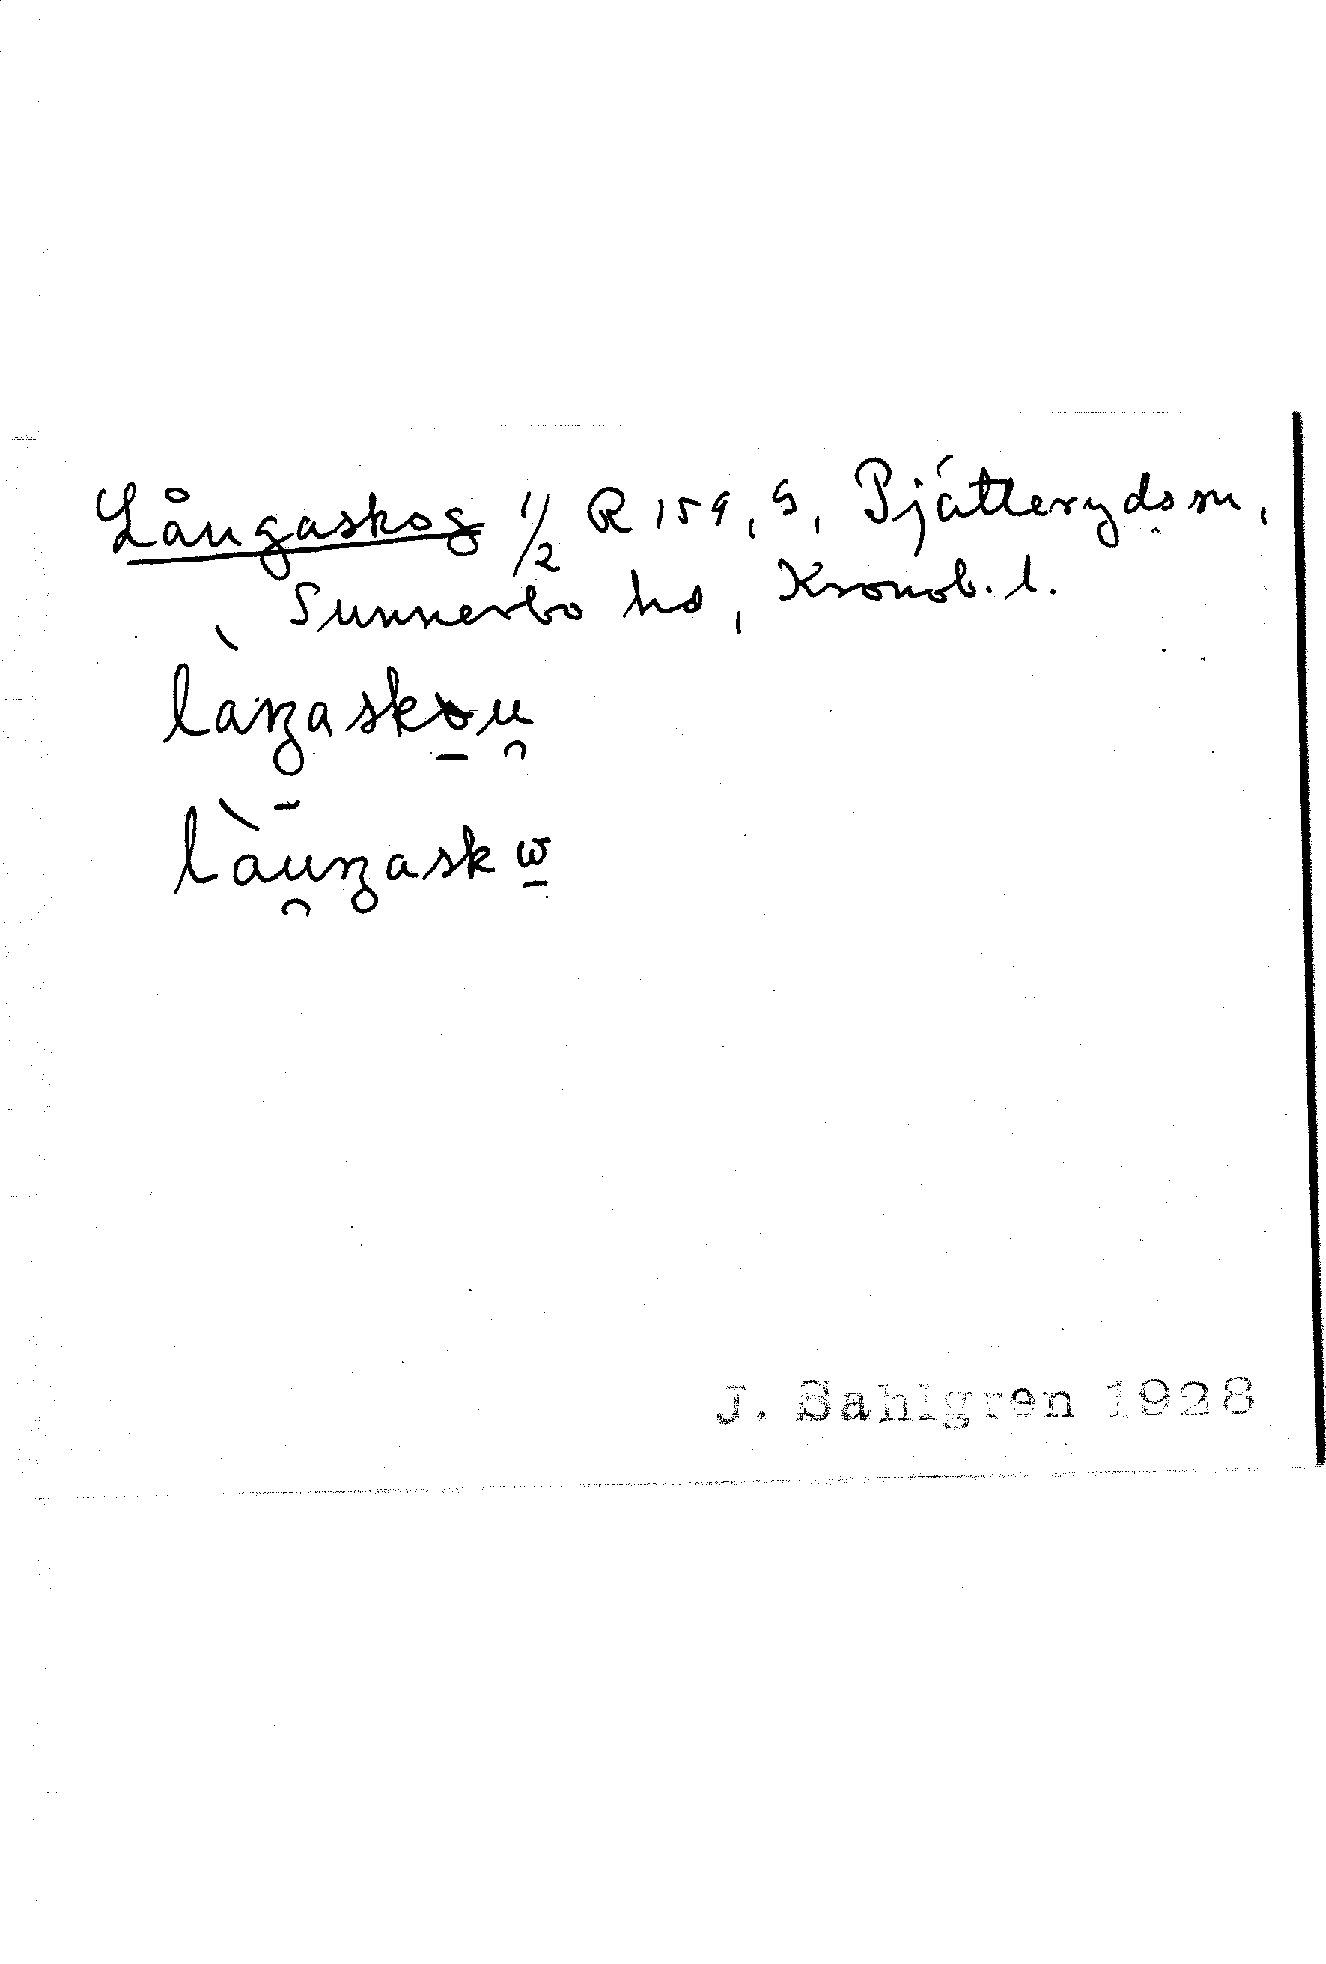 Långaskog 1/2 R 159, S, Pjätteryds sn,
Sunnerbo hd, Kronob. l.
làŋaskou̯
làu̯ŋaskω
J. Sahlgren 1928